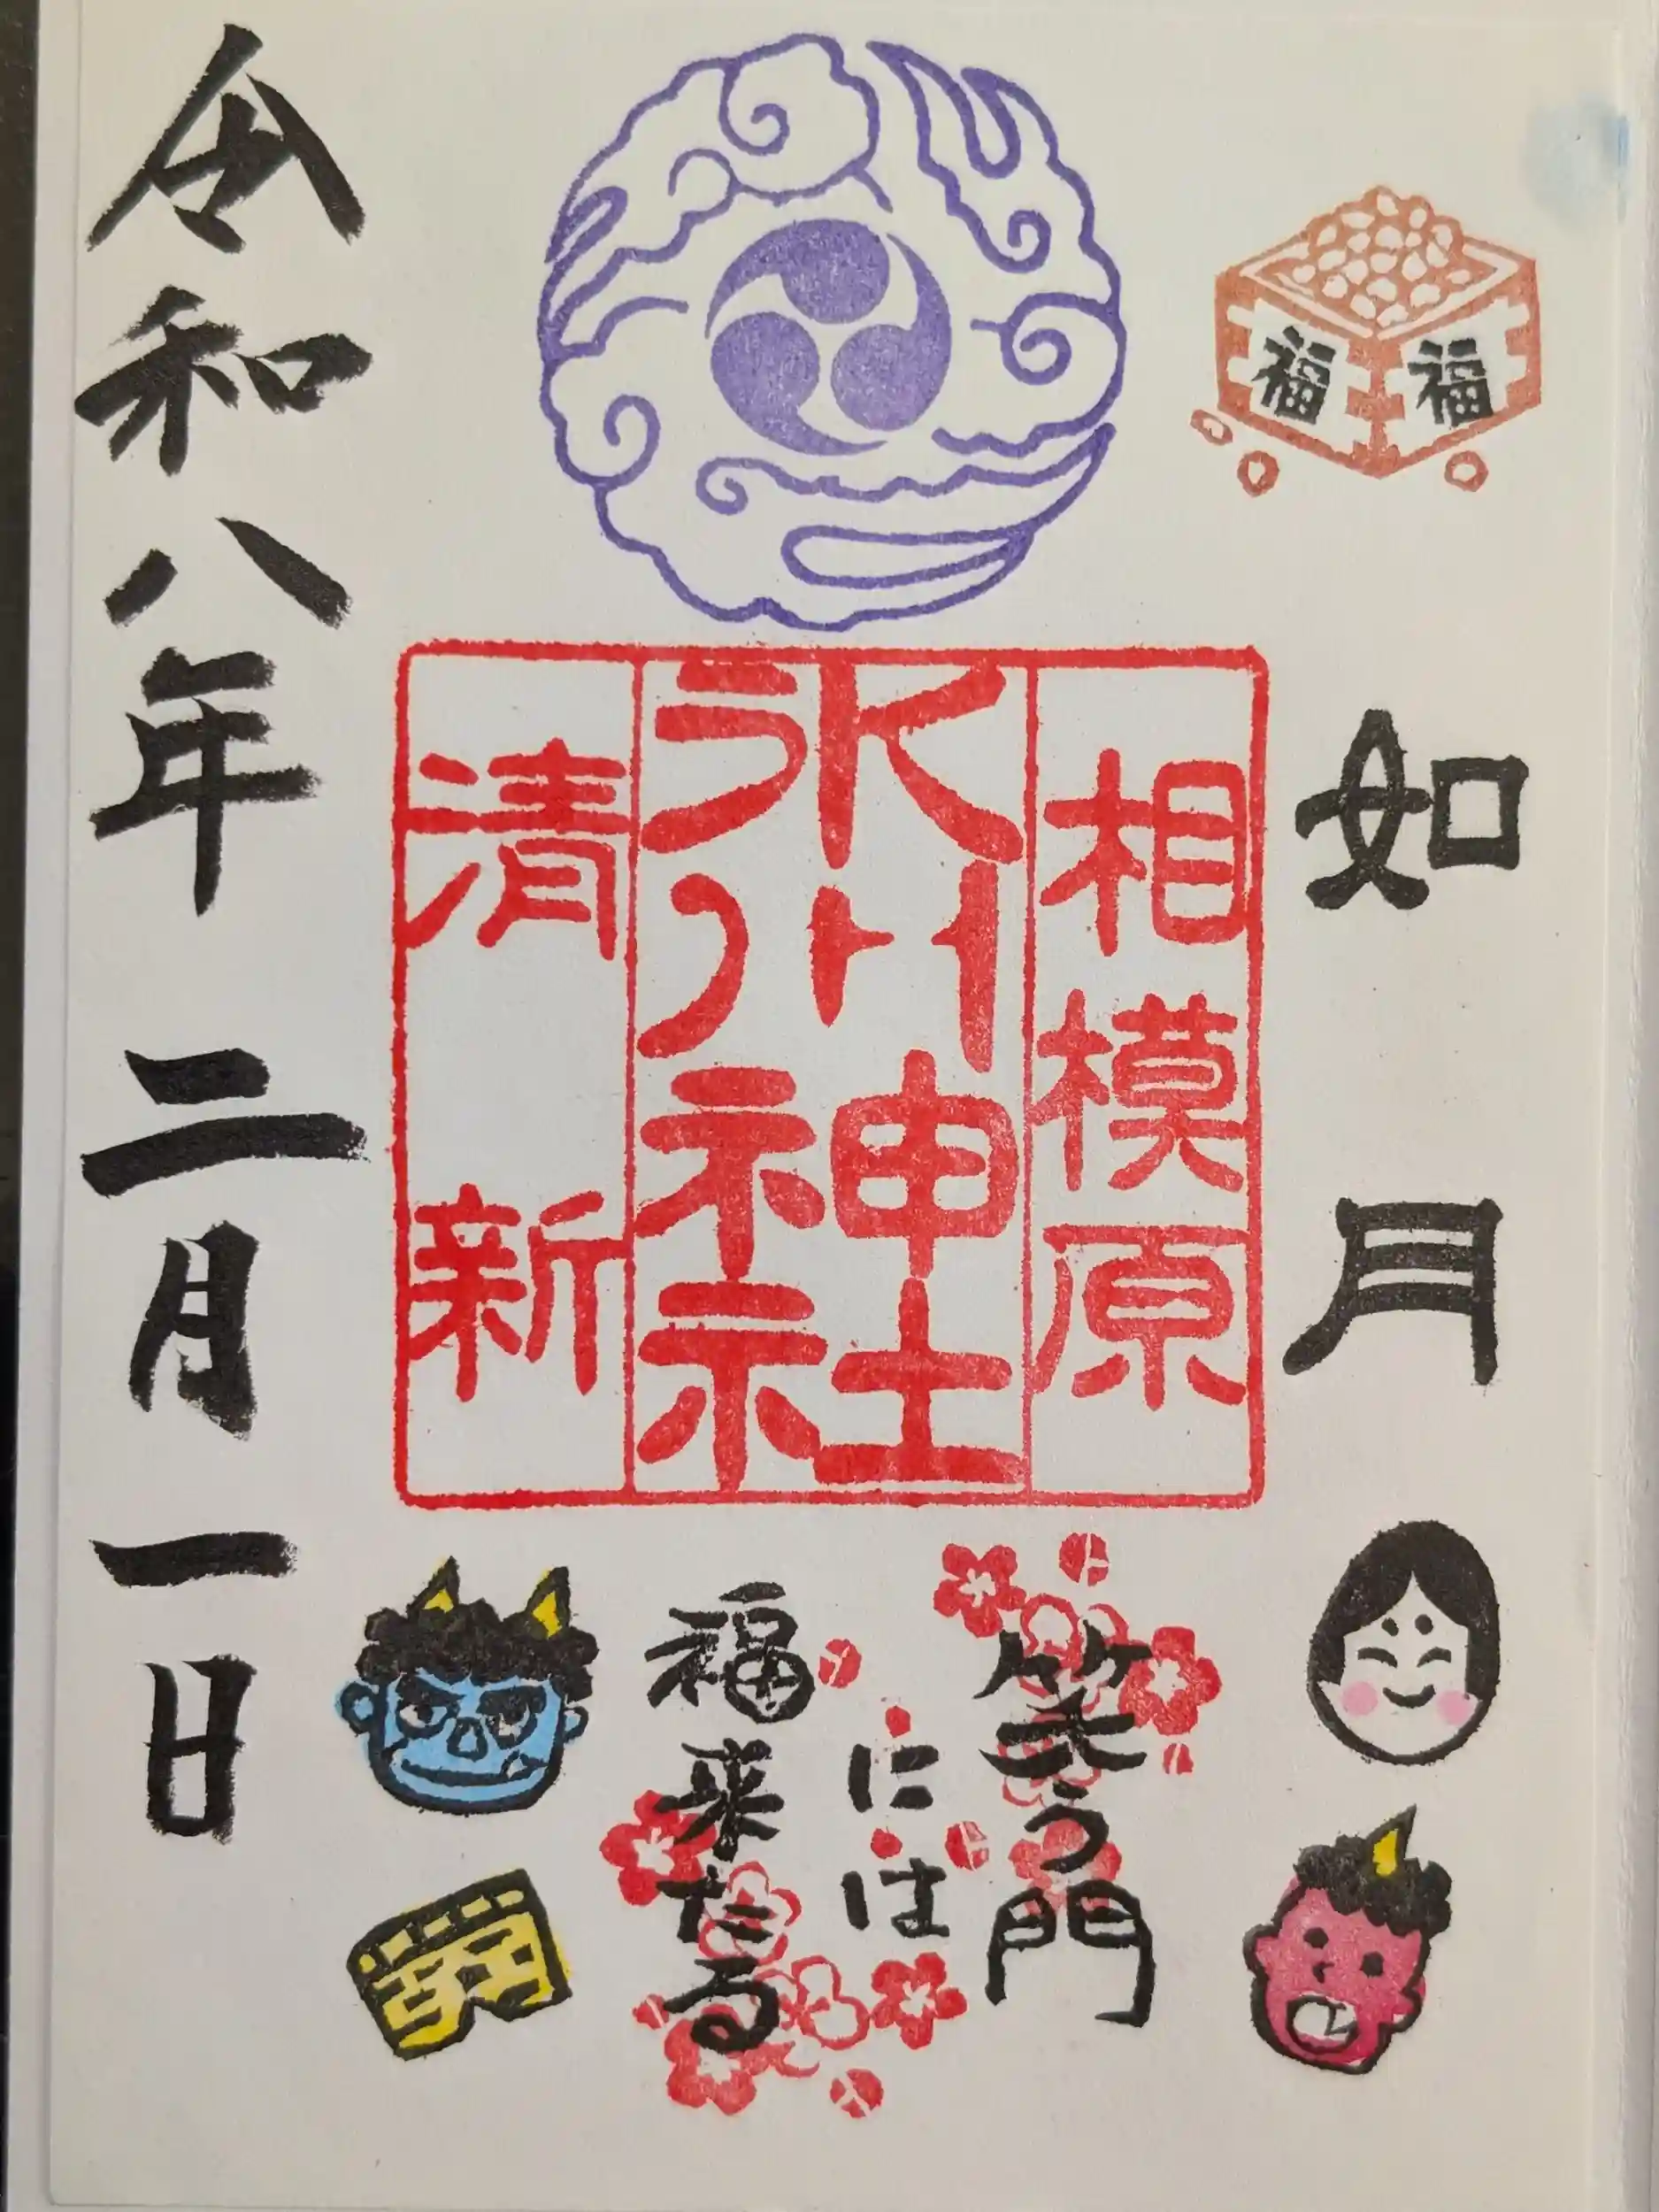 福 福
如月
相模原
氷川神社
清新
笑う門
には
福来たる
令和八年 二月一日